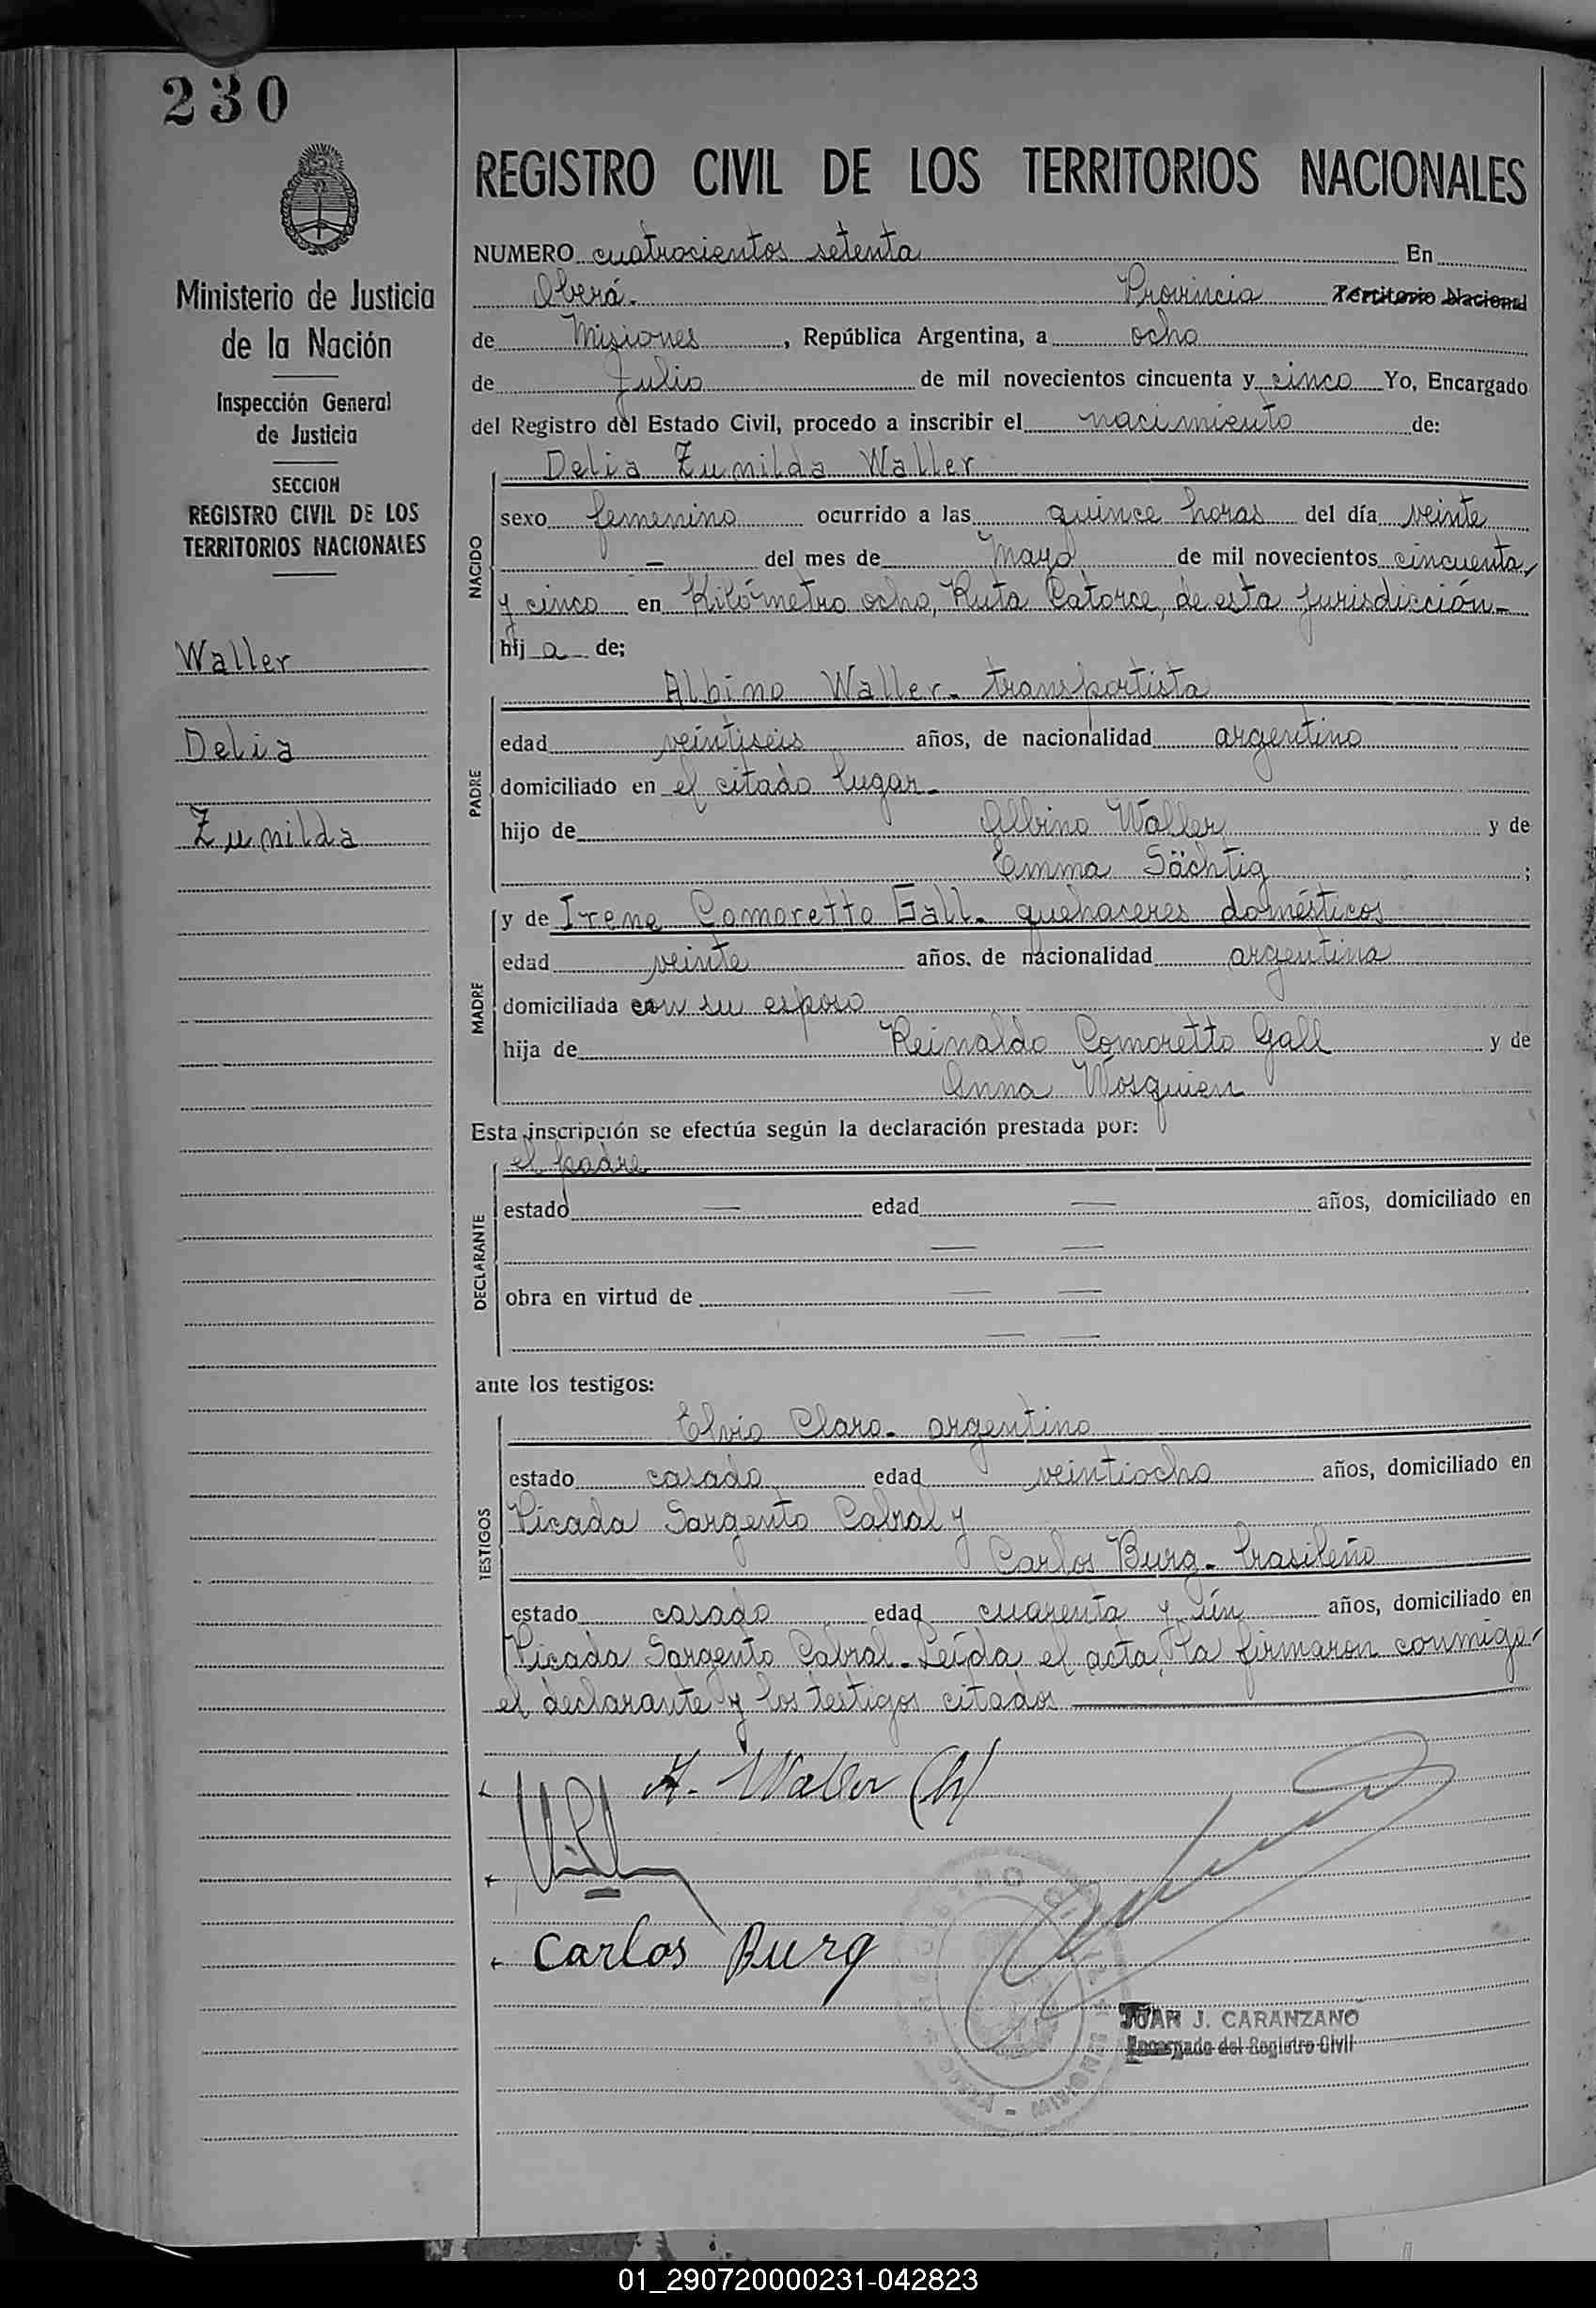 230
Ministerio de Justicia
de la Nación
Inspección General
de Justicia
SECCION
REGISTRO CIVIL DE LOS
TERRITORIOS NACIONALES
Waller
Delia
Zunilda
REGISTRO CIVIL DE LOS TERRITORIOS NACIONALES
NUMERO cuatrocientos setenta En
Oberá.- Provincia Territorio Nacional
de Misiones, República Argentina, a ocho
de Julio de mil novecientos cincuenta y cinco Yo, Encargado
del Registro del Estado Civil, procedo a inscribir el nacimiento de:
Delia Zunilda Waller
NACIDO
sexo femenino ocurrido a las quince horas del día veinte
— del mes de Mayo de mil novecientos cincuenta
y cinco en Kilómetro ocho, Ruta Catorce, de esta jurisdicción-
hij a de;
Albino Waller- transportista
PADRE
edad veintiseis años, de nacionalidad argentino
domiciliado en el citado lugar-
hijo de Albino Waller y de
Emma Sächtig ;
y de Irene Comoretto Gall- quehaceres domésticos
MADRE
edad veinte años, de nacionalidad argentina
domiciliada con su esposo
hija de Reinaldo Comoretto Gall y de
Anna Wosquien
Esta inscripción se efectúa según la declaración prestada por:
el padre
DECLARANTE
estado — edad — años, domiciliado en
— —
obra en virtud de — —
— —
ante los testigos:
Elvio Claro- argentino
TESTIGOS
estado casado edad veintiocho años, domiciliado en
Picada Sargento Cabral y
Carlos Burg- brasileño
estado casado edad cuarenta y ún años, domiciliado en
Picada Sargento Cabral- Leída el acta, la firmaron conmigo
el declarante y los testigos citados
A. Waller (h)
Carlos Burg
JUAN J. CARANZANO
Encargado del Registro Civil
01_290720000231-042823